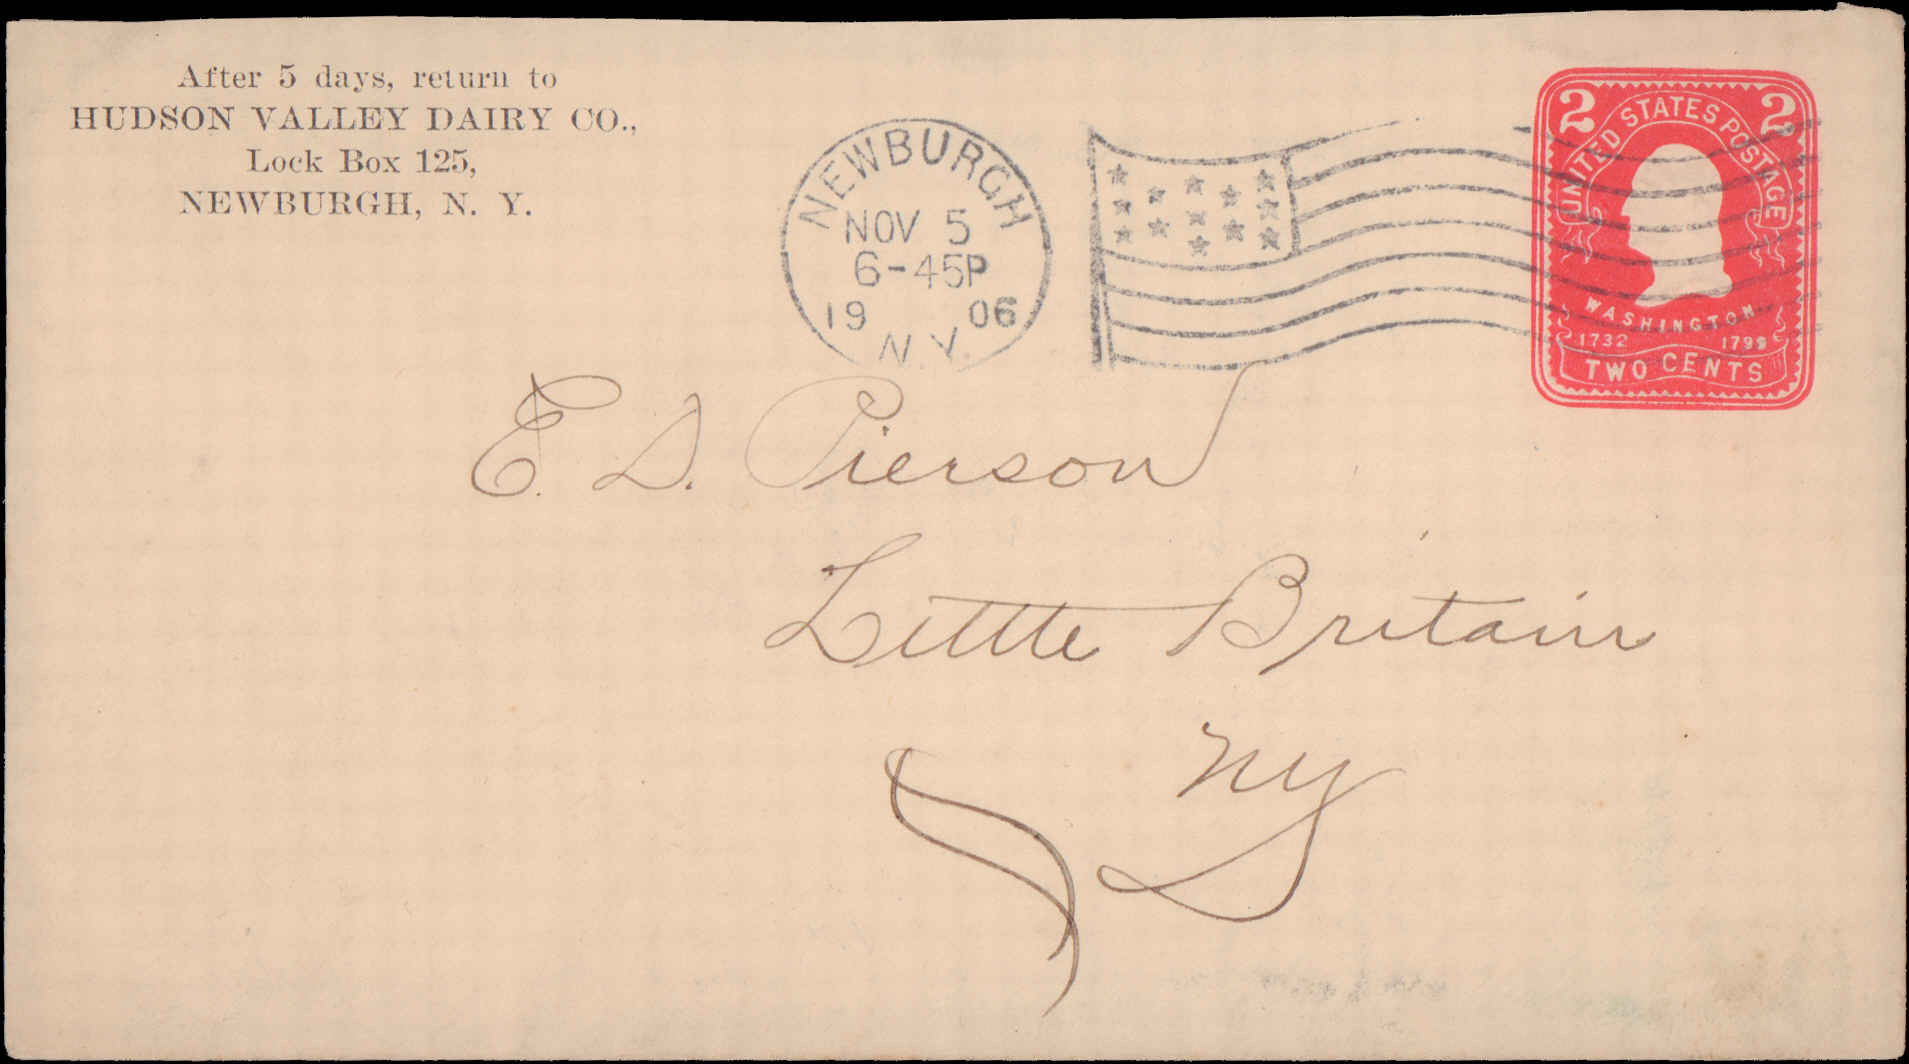 After 5 days, return to
HUDSON VALLEY DAIRY CO.,
Lock Box 125,
NEWBURGH, N. Y.
NEWBURGH
NOV 5
6-45P
19 06
N.Y.
2 2
UNITED STATES POSTAGE
WASHINGTON
1732 1799
TWO CENTS
E. D. Pierson
Little Britain
NY